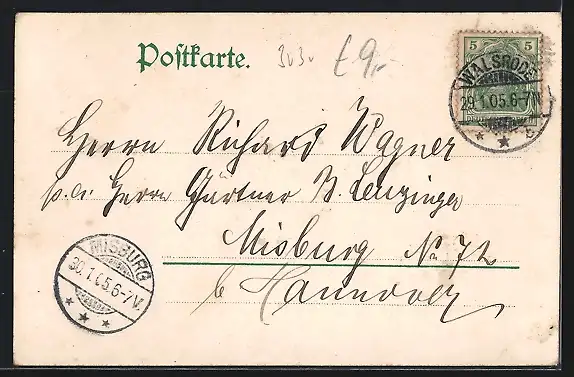 Postkarte.
3030
£9,-
5 5
WALSRODE
29.1.05.6-7N.
Herrn Richard Wagner
p. a. Herrn Gärtner H. Lenzinger
Misburg No 72
b Hannover
MISBURG
30.1.05.6-7V.